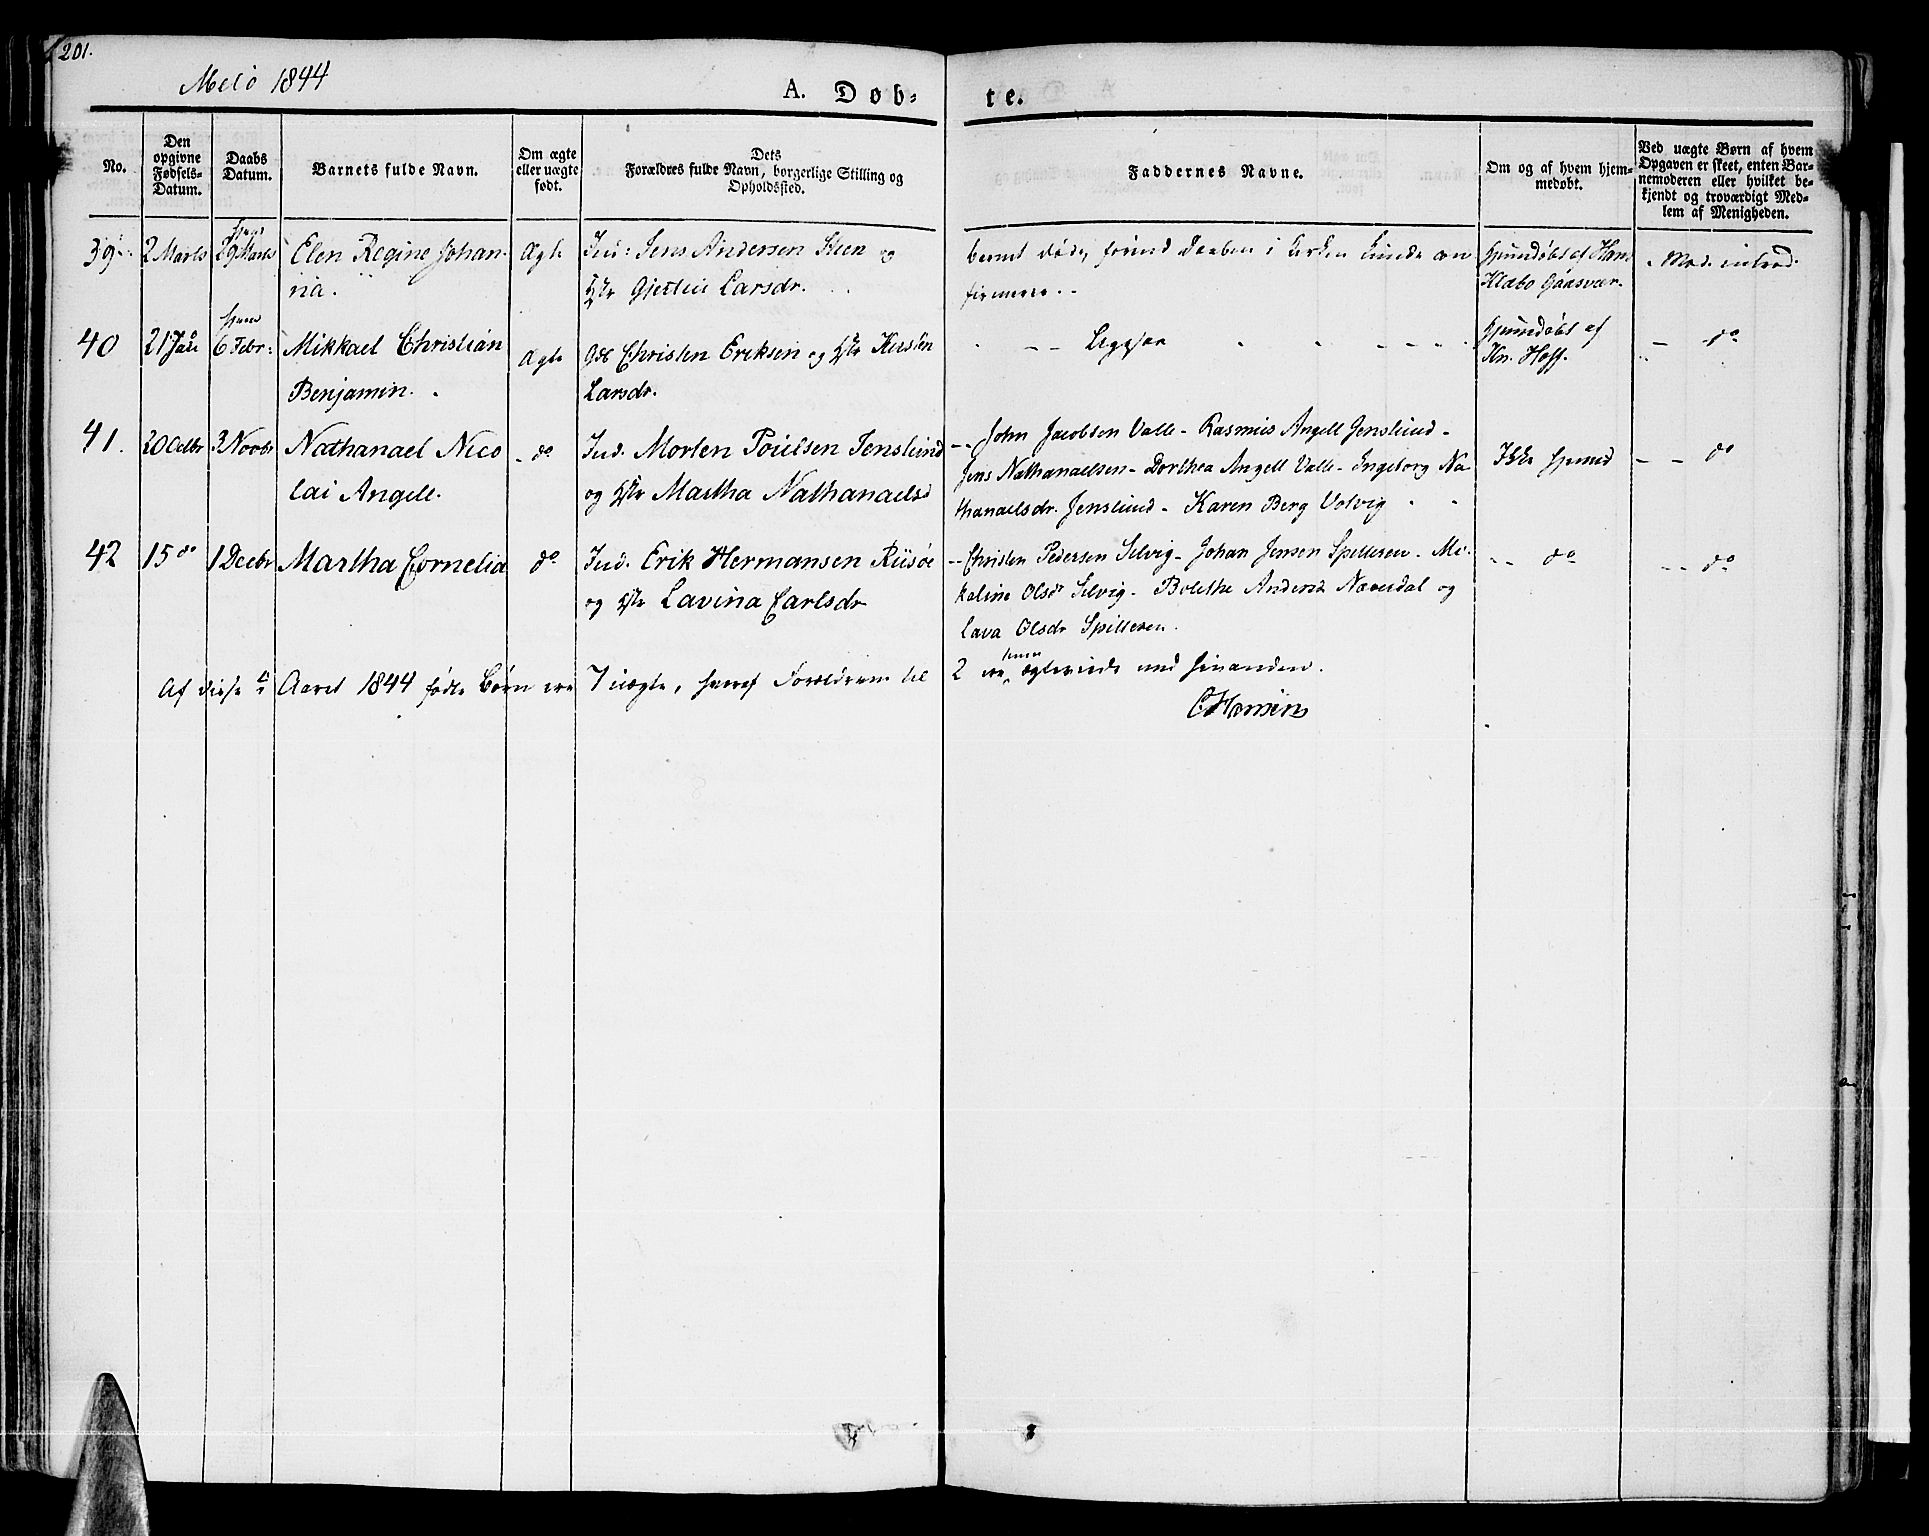 201.
Melö 1844
A. Døb-
te.
No.
Den
opgivne
Fødsels-
Datum.
Daabs
Datum.
Barnets fulde Navn.
Om ægte
eller uægte
født.
Dets
Forældres fulde Navn, borgerlige Stilling og
Opholdssted.
Faddernes Navne.
Om og af hvem hjem-
medøbt.
Ved uægte Børn af hvem
Opgaven er skeet, enten Bar-
nemoderen eller hvilket be-
kjendt og troværdigt Med-
lem af Menigheden.
39 2 Marts 29 Marts Elen Regine Johan- Ægte Ind: Jens Andersen Steen og
na. Hstr Gjertine Larsdr.
barnet døde, forend Daaben i Kirken kunde con-
firmeres.
Hjemdøbt af Hans
Klæbo Gaasvær.
Mod. introd.
40 21 Jan 6 Febr: Mikkael Christian Ægte Gdb Christen Eriksen og Hstr Kirsten
Benjamin. Larsdr.
Ligesaa
Hjemdøbt af
Kn. Hoff.
do
41. 20 Octbr 3 Novbr Nathanael Nico do Ind. Morten Poulsen Jenslund
lai Angell. og Hstr Martha Nathanaelsd
John Jacobsen Valle - Rasmus Angell Jenslund -
Jens Nathanaelsen - Dorthea Angell Valle - Ingeborg Na-
thanaelsdr. Jenslund - Karen Berg Valvig
Ikke hjemd
do
42 15 do 1 Decbr Martha Cornelia do Ind. Erik Hermansen Riisöe
og Hstr Lavina Carlsdr
Christen Pedersen Selvig - Johan Jensen Spilleren - Mi-
kaline Olsdr Selvig - Bolethe Andersd Næverdal og
Lava Olsdr Spilleren.
do
do
Af disse i Aaret 1844 fødte Børn ere 7 uægte, hvoraf Forældrene til 2 ere ægteviede med hinanden.
C Hansen